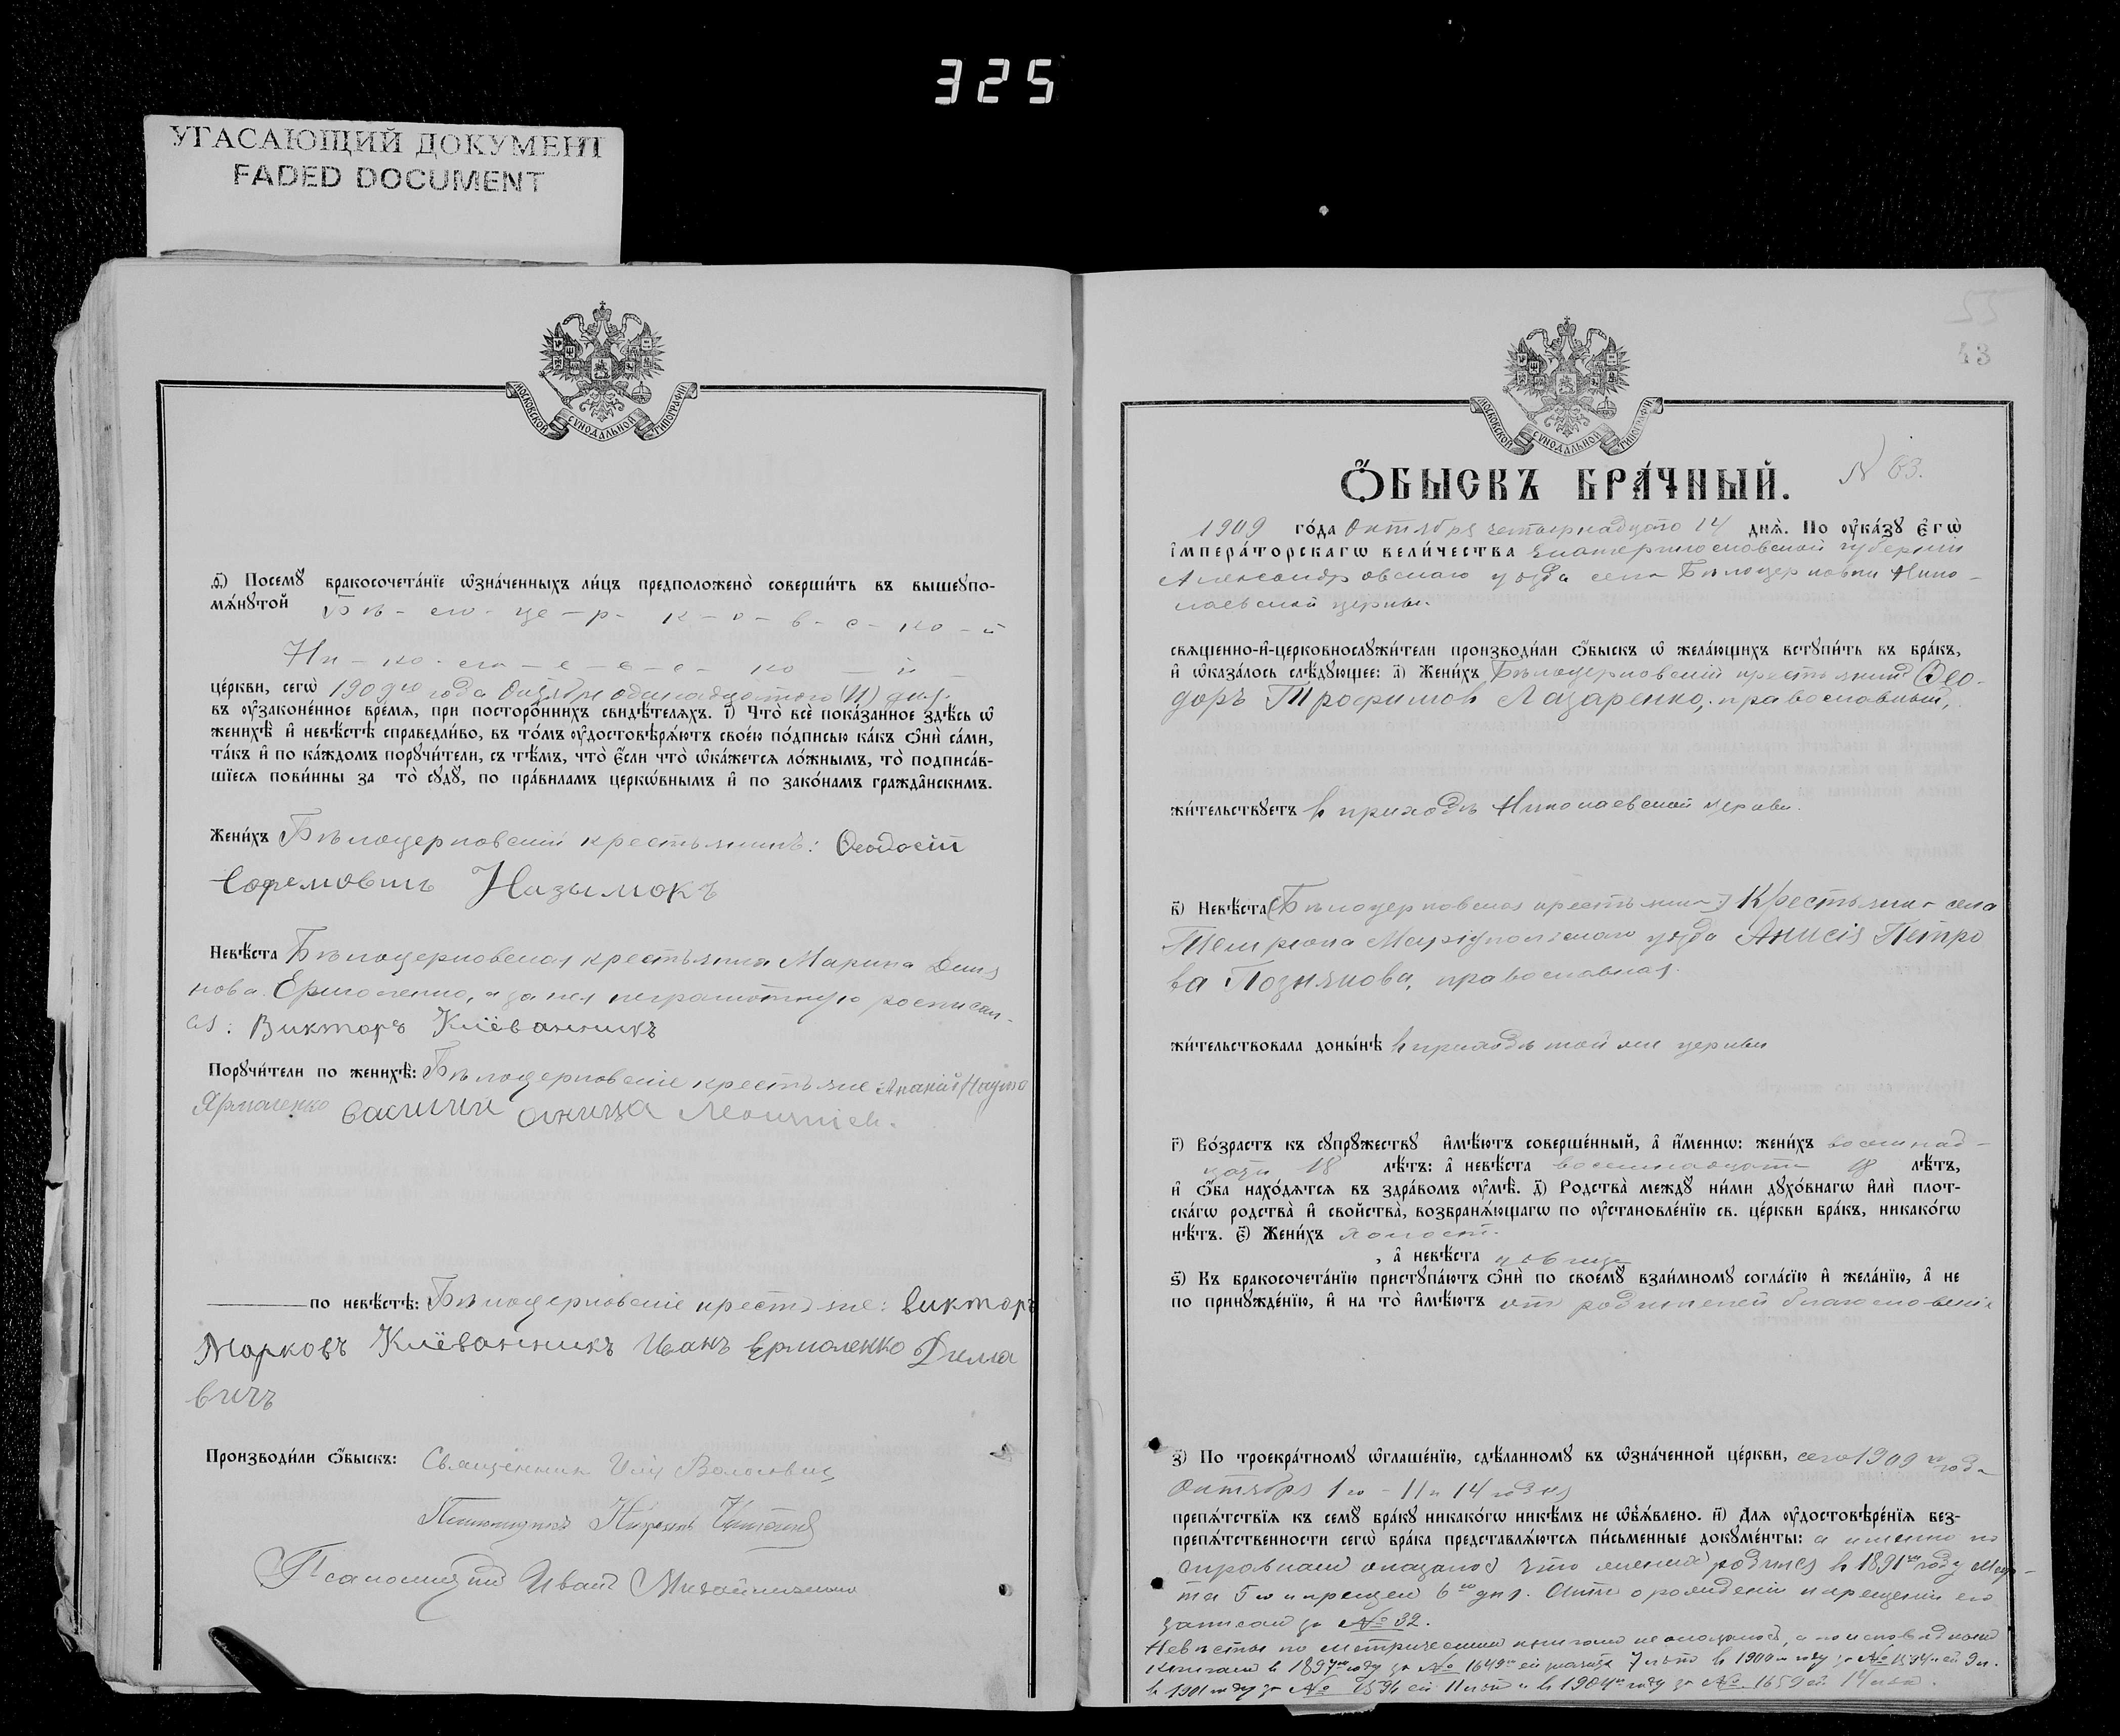 325
УГАСАЮЩИЙ ДОКУМЕНТ
FADED DOCUMENT
МОСКОВСКОЙ СѴНОДАЛЬНОЙ ТИПОГРАФІИ
д҃) Посемꙋ̀ бракосочета́нїе ѡ҆зна́ченныхъ ли́цъ предположено̀ соверши́ть въ вышеꙋпо-
мѧ́нꙋтой Бѣ - ло - це - р - к - о - в - с - ко - й
Ни - ко - ла - е - в - с - ко - й
це́ркви, сегѡ̀ 1909го года Октября одинадцатого (11) дня.
въ ᲂу҆законе́нное вре́мѧ, при посторо́ннихъ свидѣ́телѧхъ. і҃) Что̀ всѐ пока́занное здѣ́сь ѡ҆
женихѣ̀ и҆ невѣ́стѣ справедли́во, въ то́мъ ᲂу҆достовѣрѧ́ютъ свое́ю по́дписью ка́къ ѻ҆нѝ са́ми,
та́къ и҆ по ка́ждомъ порꙋчи́тели, съ тѣ́мъ, что̀ є҆́сли что̀ ѡ҆ка́жетсѧ ло́жнымъ, то̀ подписа́в-
шїесѧ пови́нны за то̀ сꙋдꙋ̀, по пра́виламъ церкѡ́внымъ и҆ по зако́намъ гражда̂нскимъ.
Жени́хъ Бѣлоцерковскій крестьянинъ: Ѳеодосій
Ефремовичъ Назымокъ
Невѣ́ста Бѣлоцерковская крестьянка Марина Деми
нова Ермоленко, а за нея неграмотную росписал-
ся: Викторъ Кліёванникъ
Порꙋчи́тели по женихѣ̀: Бѣлоцерковскіе крестьяне: Ананій Наумо
Ярмоленко василий
по невѣ́стѣ: Бѣлоцерковскіе крестьяне: Викторъ
Марковъ Кліёванникъ Иванъ Ермоленко Дема
вичъ
Производи́ли ѻ҆́быскъ: Священникъ Илія
Псаломщикъ
Псаломщикъ Иванъ Михайличенко
43
МОСКОВСКОЙ СѴНОДАЛЬНОЙ ТИПОГРАФІИ
Ѻ҆́БЫСКЪ БРА́ЧНЫЙ. N 63.
1909 го́да Октября четвернадцато 14 днѧ̀. По ᲂу҆ка́зꙋ є҆гѡ̀
і҆мпера́торскагѡ вели́чества Екатеринославской губерніи
Александровскаго уѣзда села Бѣлоцерковки Нико-
лаевской церкви.
свѧще́нно-и҆-церковнослꙋжи́тели производи́ли ѻ҆́быскъ ѡ҆ жела́ющихъ встꙋпи́ть въ бра́къ,
и҆ ѡ҆каза́лось слѣ́дꙋющее: а҃) Жени́хъ Бѣлоцерковскій крестьянинъ Ѳео-
доръ Трофимов Лазаренко, православный,
жи́тельствꙋетъ в приходѣ Николаевской церкви.
в҃) Невѣ́ста (Бѣлоцерковская крестьянка) Крестьянка села
Темрюка Маріупольскаго уѣзда Анисія Петро
ва Познякова, православная.
жи́тельствовала доны́нѣ в приходѣ той же церкви
г҃) Во́зрастъ къ сꙋпрꙋ́жествꙋ и҆мѣ́ютъ соверше́нный, а҆ и҆́меннѡ: жени́хъ восемнад-
цати 18 лѣ́тъ: а҆ невѣ́ста восемнадцати 18 лѣ́тъ,
и҆ ѻ҆́ба нахо́дѧтсѧ въ здра́вомъ ᲂу҆мѣ̀. д҃) Родства̀ междꙋ̀ ни́ми дꙋхо́внагѡ и҆лѝ плот-
ска́гѡ родства̀ и҆ свойства̀, возбранѧ́ющагѡ по ᲂу҆становле́нїю св. це́ркви бра́къ, никако́гѡ
нѣ́тъ. є҃) Жени́хъ холост.
, а҆ невѣ́ста дѣвица
ѕ҃) Къ бракосочета́нїю пристꙋпа́ютъ ѻ҆нѝ по своемꙋ̀ взаи́мномꙋ согла́сїю и҆ жела́нїю, а҆ не
по принꙋжде́нїю, и҆ на то̀ и҆мѣ́ютъ отъ родителей благословеніе
з҃) По троекра́тномꙋ ѡ҆глаше́нїю, сдѣ́ланномꙋ въ ѡ҆зна́ченной це́ркви, сего 1909го года
Октября 1го - 11и 14го дня
препѧ́тствїѧ къ семꙋ̀ бра́кꙋ никако́гѡ никѣ́мъ не ѡ҆б̾ѧ́влено. и҃) Длѧ ᲂу҆достовѣре́нїѧ без-
препѧ́тственности сегѡ̀ бра́ка представлѧ́ютсѧ пи́сьменные докꙋме́нты: а именно по
справкам оказалось что жених родился в 1891м году Мар-
та 5го и крещен 6го дня. Актъ о рожденіи и крещеніи его
записан за № 32.
Невѣсты по метрическим книгам не оказалось, а по исповѣдным
книгам в 1897м году за № 1649м ей показ. 7 лѣт в 1900м году за № 1594м ей 9 л.
в 1901м году за № 1596 ей 11 лѣт и в 1904м году за № 1659 ей 14 лѣт.